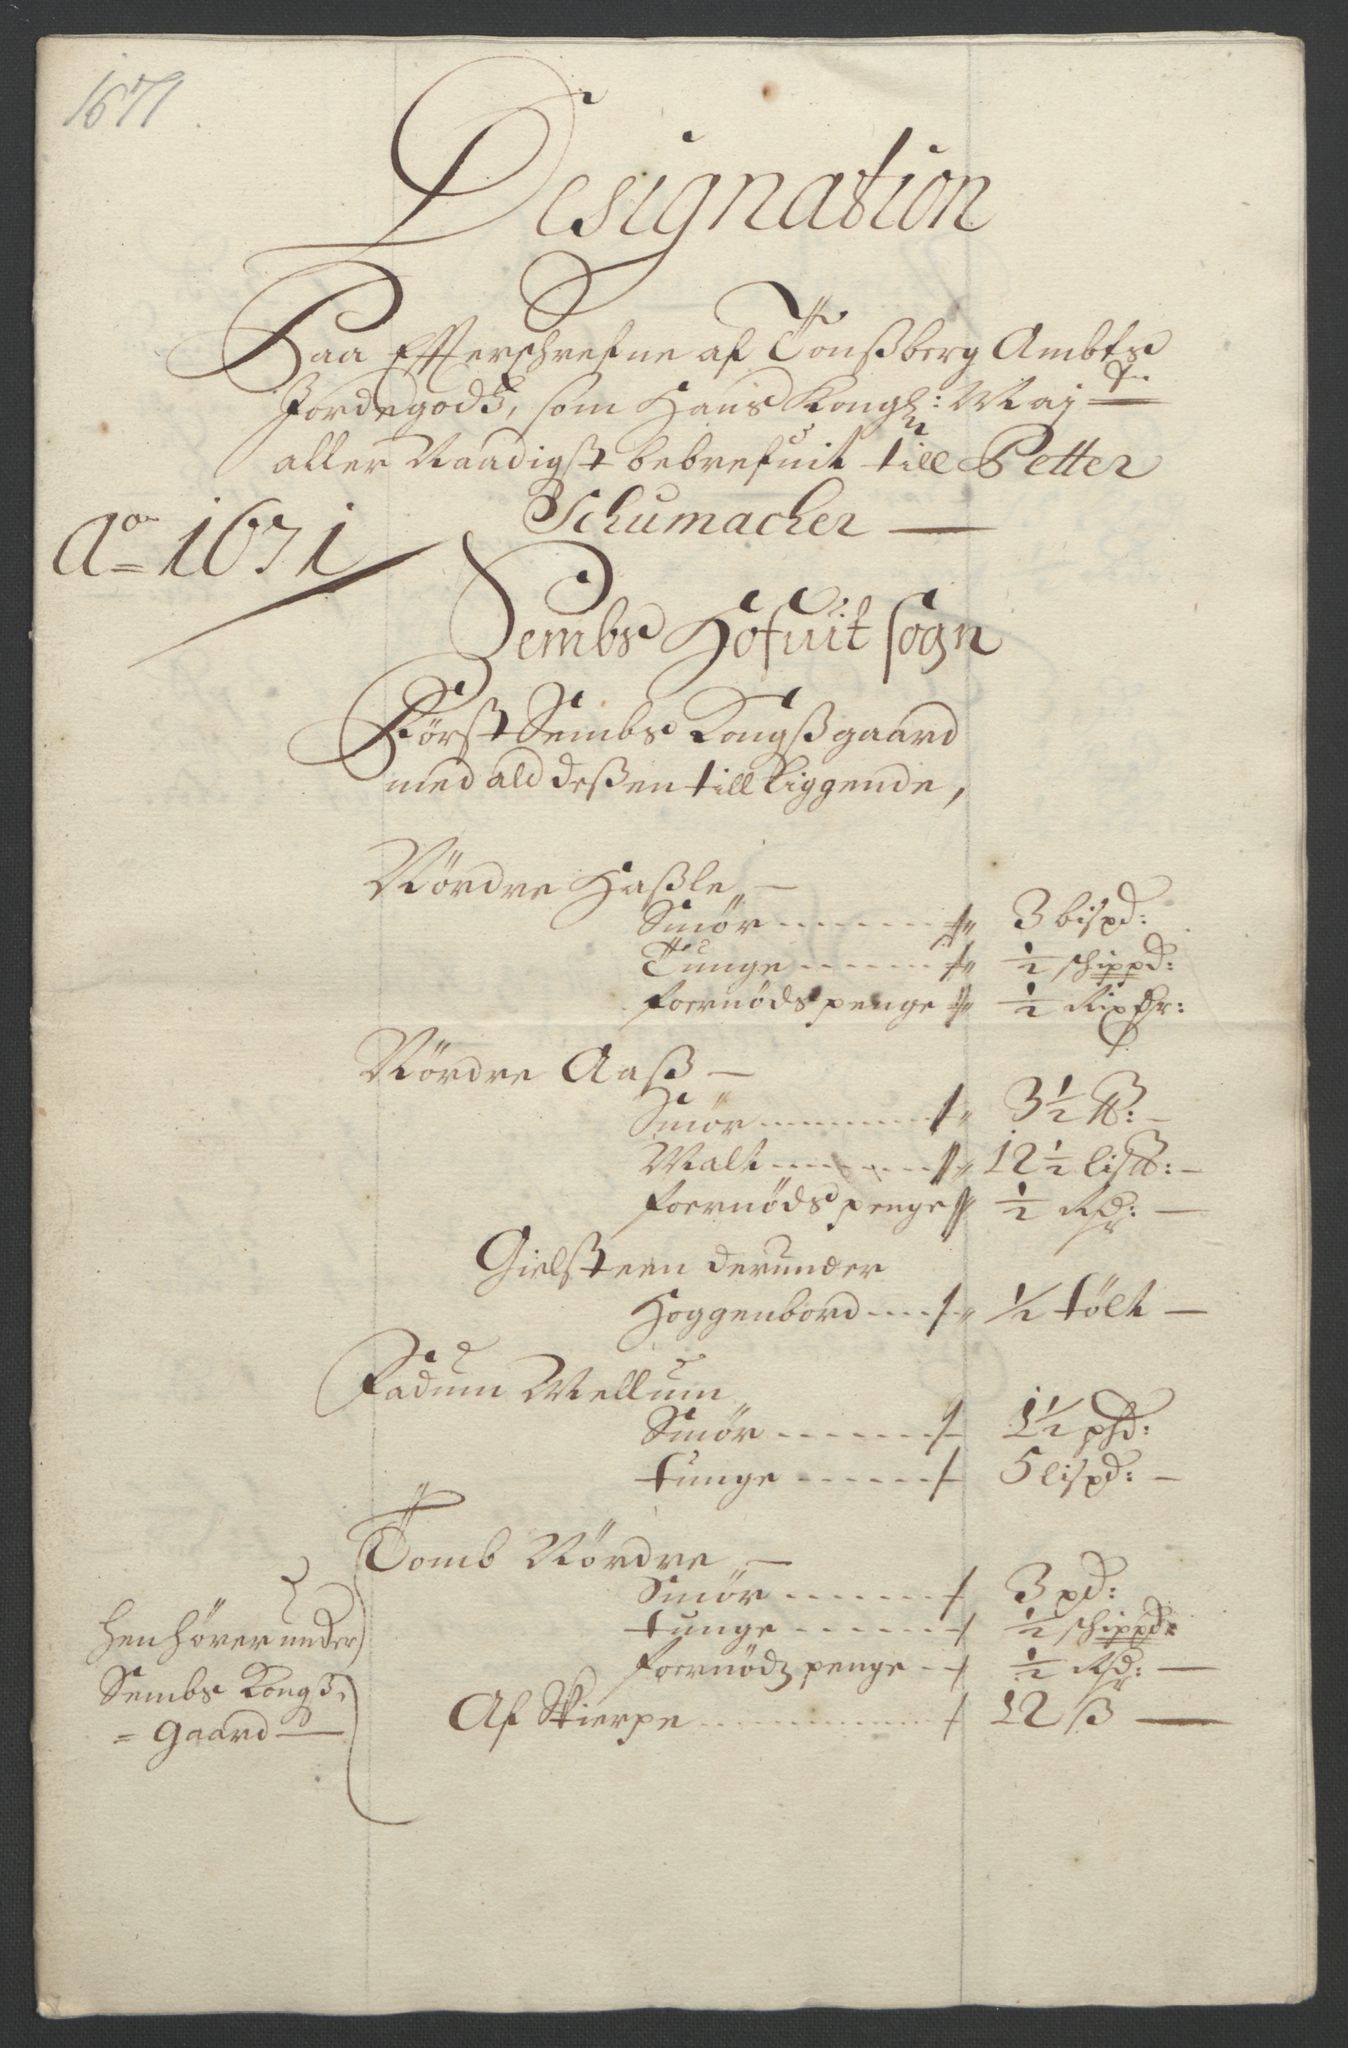 1671
Designation
Paa Effterschrefne af Tönßberg Ambts
Jordegods, som Hans Kongl: Maj
aller Naadigst bebrefuit till Petter
Schumacher —
Ao = 1671
Sembs Hofuit sogn
Först Sembs Kongßgaard
med ald deßen till liggende,
Nördre Haßle —
Smör 3 bispd:
Tunge ½ schippd:
foernöds penge ½ Rixdr:
Nördre Aaß —
Smör 3½ ℔: —
Malt 12½ lis℔: —
foernöds penge ½ Rdr: —
Gielsteen derunder
Hoggenbord ½ tölt —
Fadum Mellum
Smör 1½ pd:
tunge 5 lispd: —
Tomb Nördre —
Smör 3 pd:
tunge ½ schippd:
foernöds penge ½ Rdr: —
Af Skierpe 12 ß —
henhörer under
Sembs Kongß
= gaard —